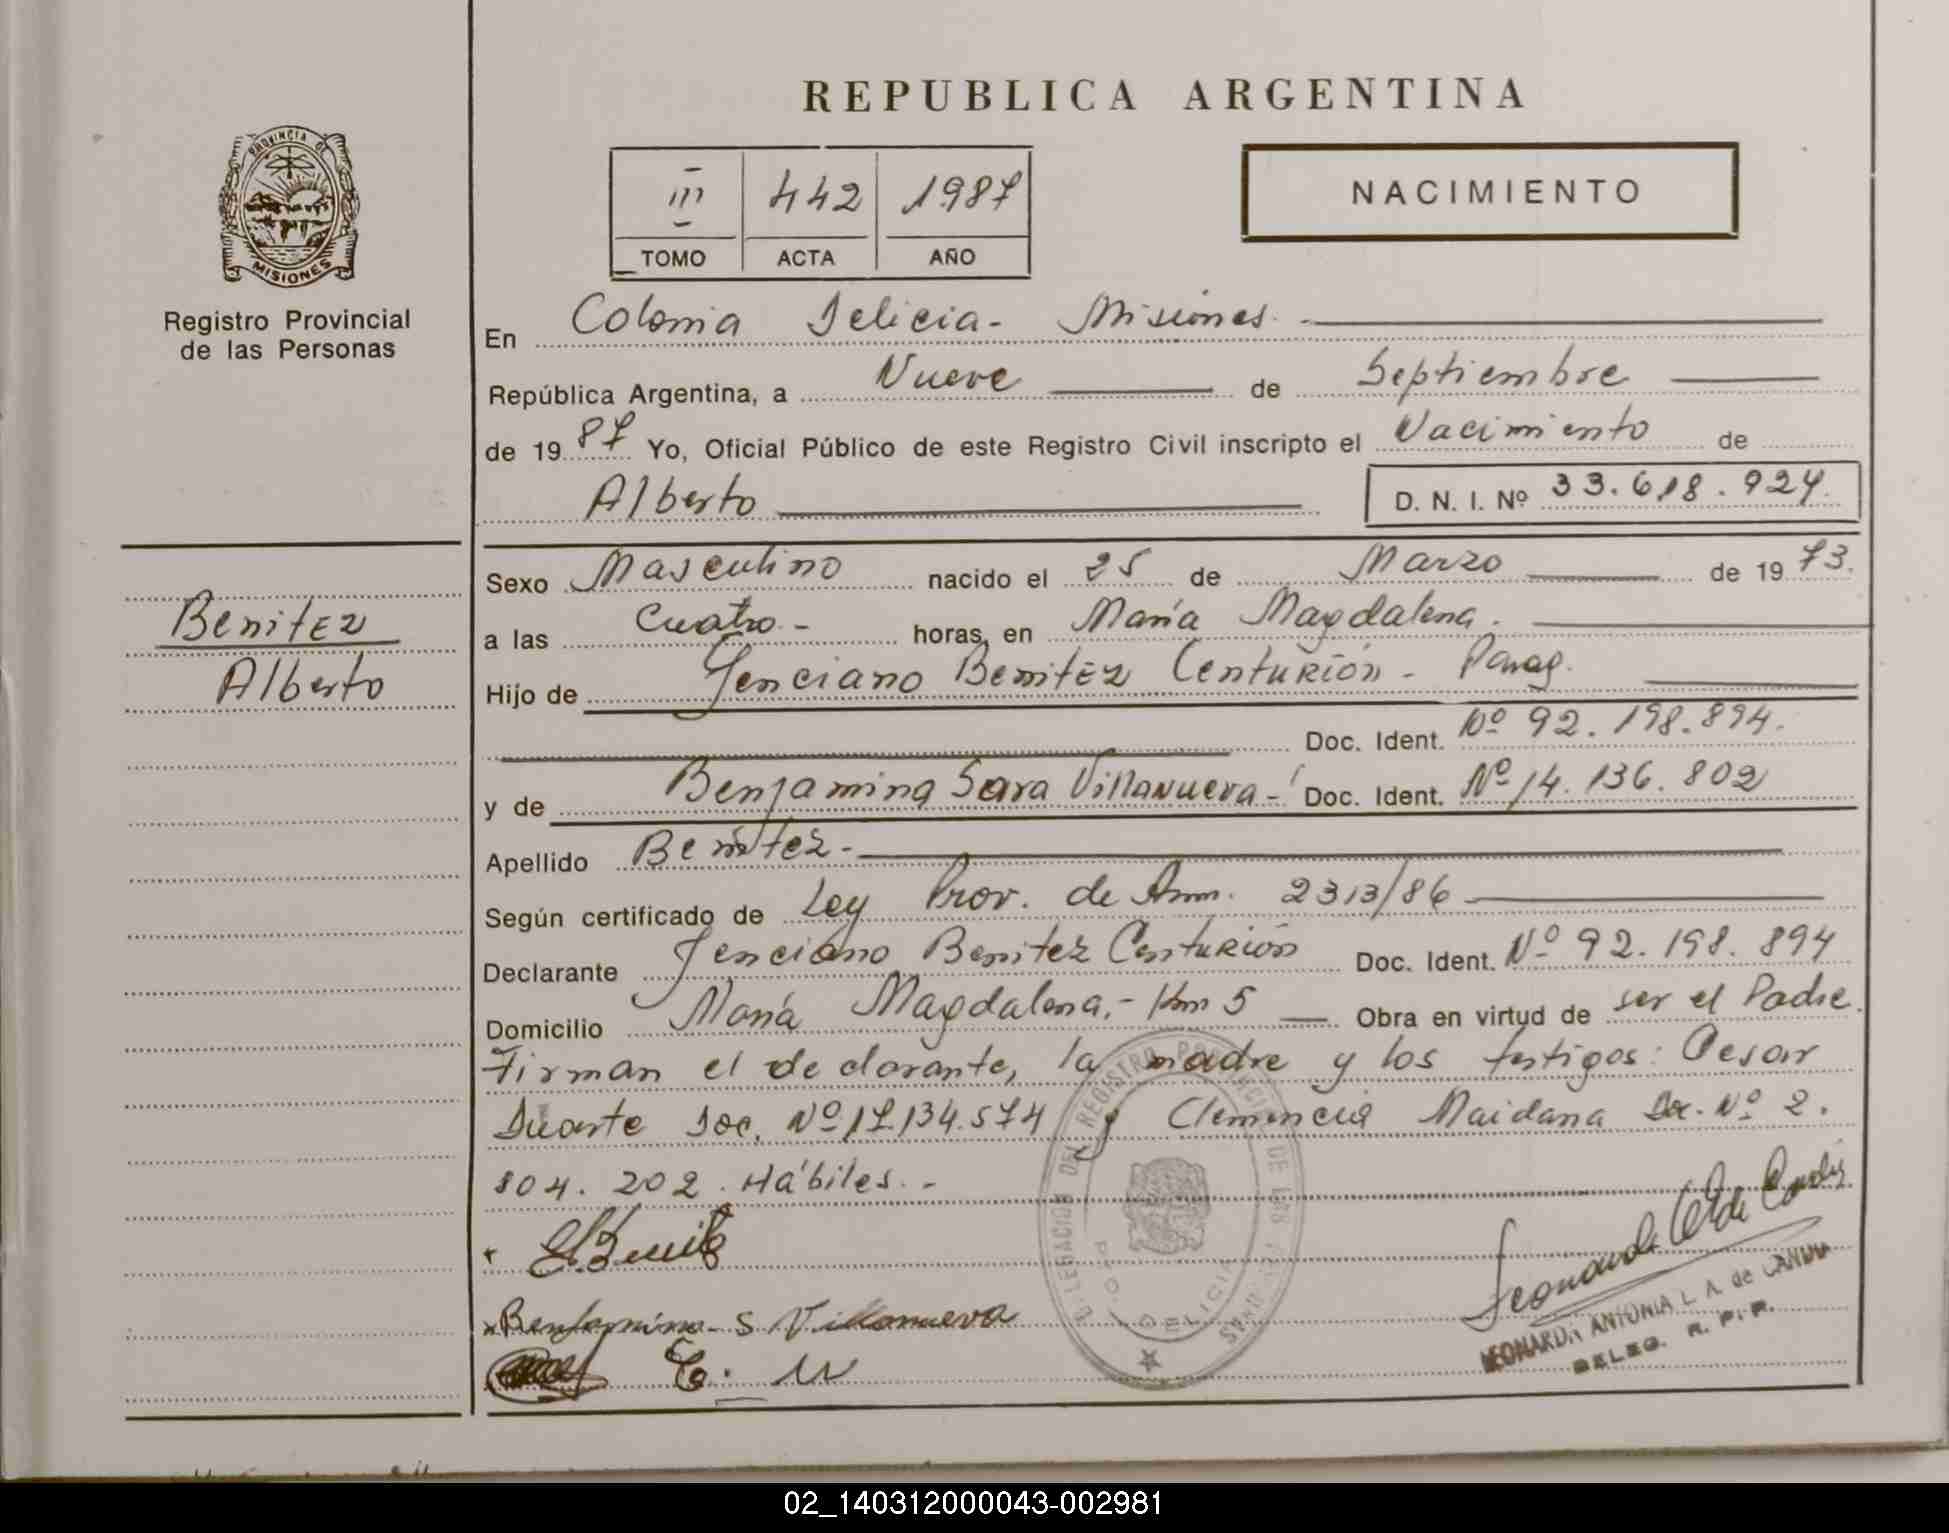 REPUBLICA ARGENTINA
PROVINCIA DE
MISIONES
Registro Provincial
de las Personas
III 442 1987
TOMO ACTA AÑO
NACIMIENTO
En Colonia Delicia - Misiones.
República Argentina, a Nueve de Septiembre
de 1987 Yo, Oficial Público de este Registro Civil inscripto el Nacimiento de
Alberto D. N. I. Nº 33.618.924.
Benitez
Alberto
Sexo Masculino nacido el 25 de Marzo de 1973.
a las Cuatro.- horas, en María Magdalena.
Hijo de Jenciano Benitez Centurión - Parag.
Doc. Ident. Nº 92.198.894.
y de Benjamina Sara Villanueva - Doc. Ident. Nº 14.136.802
Apellido Benitez.-
Según certificado de Ley Prov. de Amn. 2313/86
Declarante Jenciano Benitez Centurión Doc. Ident. Nº 92.198.894
Domicilio María Magdalena.- Km 5 Obra en virtud de ser el Padre.
Firman el declarante, la madre y los testigos: Cesar
Duarte Doc. Nº 17.134.574 y Clemencia Maidana Doc. Nº 2.
804.202. Hábiles.-
DELEGACION DEL REGISTRO PROVINCIAL DE LAS PERSONAS
DELICIA
Benjamina S Villanueva
LEONARDA ANTONIA L. A. de
DELEG. R. P. P.
02_140312000043-002981